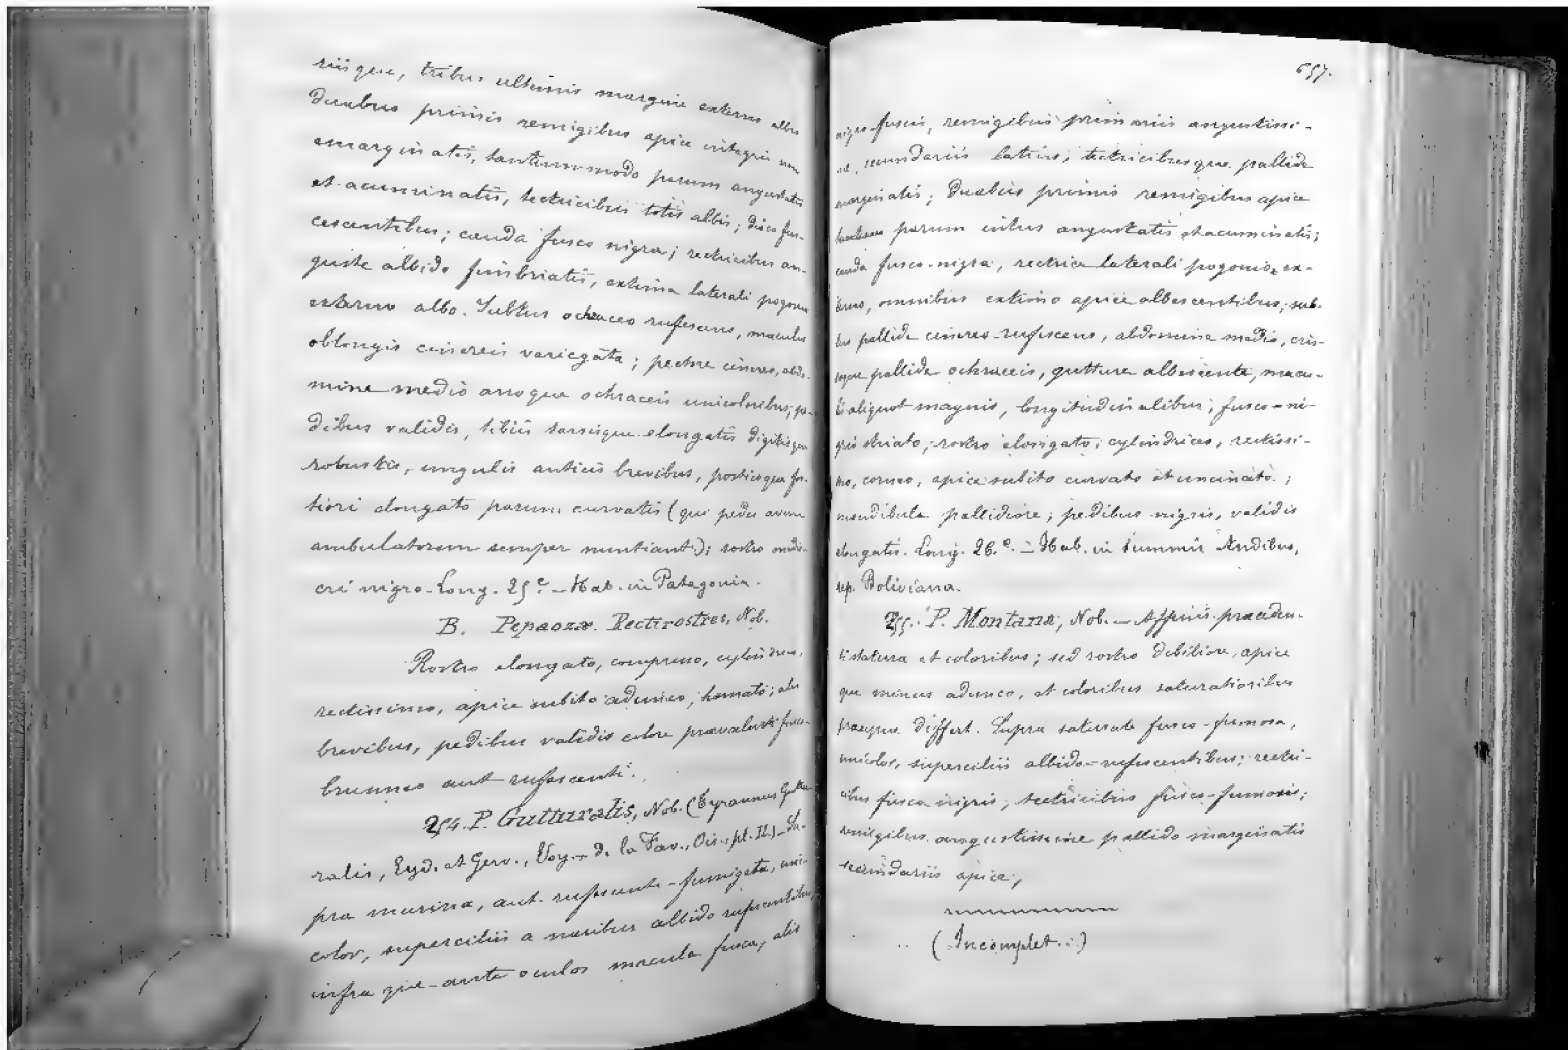 riisque, tribus ultimis margine externo albis
duabus primis remigibus apice integris non
emarginatis, tantummodo parum angustatis
et acuminatis, tectricibus totis albis; disco fus-
cescentibus; cauda fusco nigra; rectricibus an-
guste albido fimbriatis, extima laterali pogonio
externo albo. Subtus ochraceo rufescens, maculis
oblongis cinereis variegata; pectore cinereo, abdo-
mine medio anoque ochraceis unicoloribus; pe-
dibus validis, tibiis tarsisque elongatis digitisque
robustis, ungulis anticis brevibus, posticoque for-
tiori elongato parum curvatis (qui pedes avem
ambulatorem semper nuntiant); rostro medio-
cri nigro. Long. 25 c. – Hab. in Patagonia.
B. Pepaozæ Rectirostres, Nob.
Rostro elongato, compresso, cylindreo,
rectissimo, apice subito adunco, hamato; alis
brevibus, pedibus validis colore prævalenti fusco-
brunneo aut rufescenti.
254. P. Gutturalis, Nob. (Tyrannus Guttu-
ralis, Eyd. et Gerv., Voy. de la Fav., Ois., pl. II.) – Su-
pra murina, aut rufescente-fumigata, uni-
color, superciliis a naribus albido rufescentibus,
infra que ante oculos macula fusca, alis
657.
nigro-fuscis, remigibus primariis angustissi-
me, secundariis latius, tectricibusque pallide
marginatis; duabus primis remigibus apice
tantum parum intus angustatis et acuminatis;
cauda fusco-nigra, rectrice laterali pogonio ex-
terno, omnibus extimo apice albescentibus; sub-
tus pallide cinereo-rufescens, abdomine medio, cris-
soque pallide ochraceis, gutture albescente, macu-
lis aliquot magnis, longitudinalibus, fusco-ni-
gris striato; rostro elongato, cylindrico, rectissi-
mo, corneo, apice subito curvato et uncinato;
mandibula pallidiore; pedibus nigris, validis
elongatis. Long. 26. c. – Hab. in summis Andibus,
rep. Boliviana.
255. P. Montana, Nob. – Affinis præceden-
ti statura et coloribus; sed rostro debiliore, apice
que minus adunco, et coloribus saturatioribus
differt. Supra saturate fusco-fumosa,
unicolor, superciliis albido-rufescentibus; rectri-
cibus fusco nigris, tectricibus fusco-fumosis;
remigibus angustissime pallido marginatis
secundariis apice,
(Incomplet...)